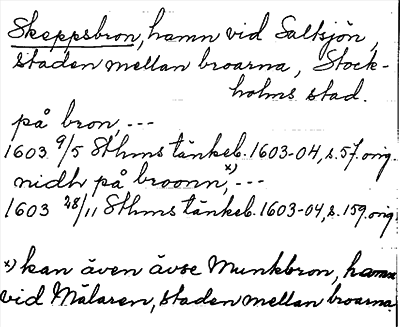 Skeppsbron, hamn vid Saltsjön,
staden mellan broarna, Stock-
holms stad.
på bron, ---
1603 9/5 Sthms tänkeb. 1603-04, s. 57. orig.
nidh på broonn, x) ---
1603 28/11 Sthms tänkeb. 1603-04, s. 159. orig.
x) kan även avse Munkbron, hamn
vid Mälaren, staden mellan broarna.